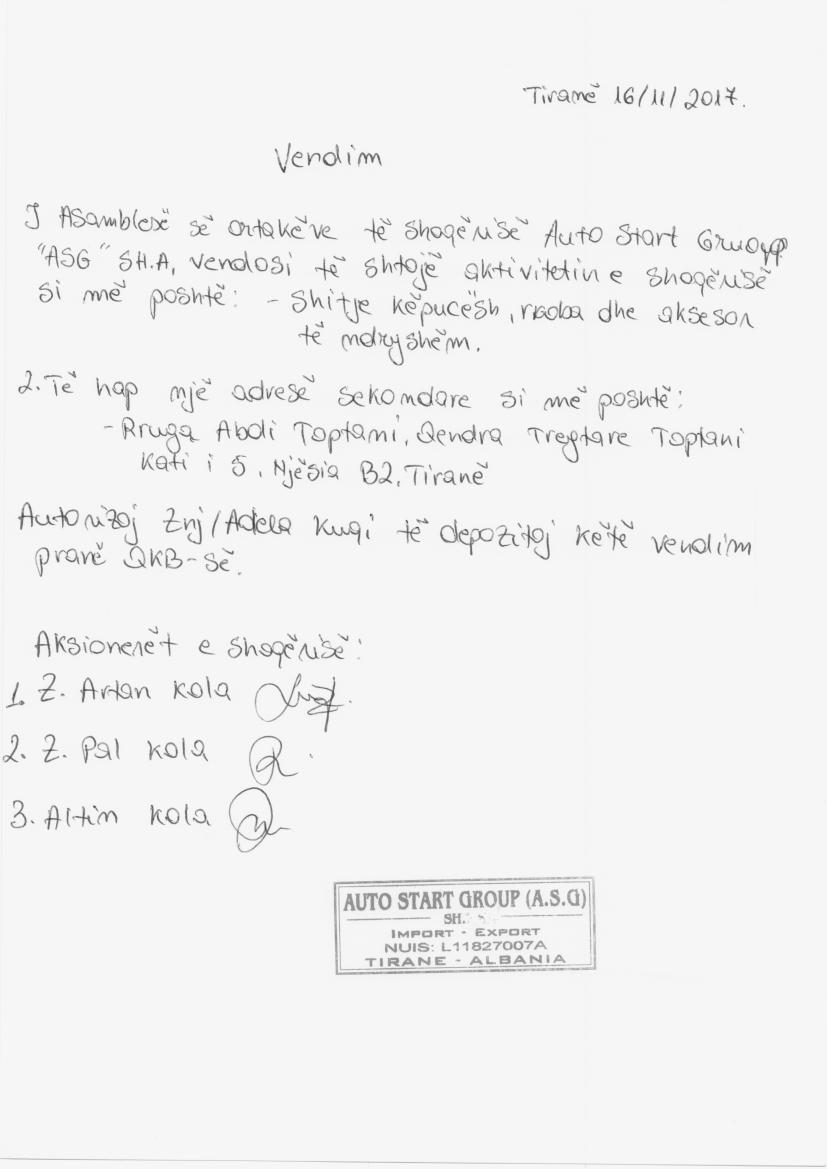 Tiranë 16/11/2017.
Vendim
I Asamblesë së ortakëve të shoqërisë Auto Start Gruopp
"ASG" SH.A, vendosi të shtojë aktivitetin e shoqërisë
si më poshtë: - Shitje këpucësh, rroba dhe aksesor
të ndryshëm.
2. Të hap një adresë sekondare si më poshtë:
- Rruga Abdi Toptani, Qendra Tregtare Toptani
Kati i 5, Njësia B2, Tiranë
Autorizoj Znj/Adela Kuqi të depozitoj këtë vendim
pranë QKB-së.
Aksionerët e shoqërisë:
1. Z. Artan Kola
2. Z. Pal Kola
3. Altin Kola
AUTO START GROUP (A.S.G)
SH.
IMPORT - EXPORT
NUIS: L11827007A
TIRANE - ALBANIA